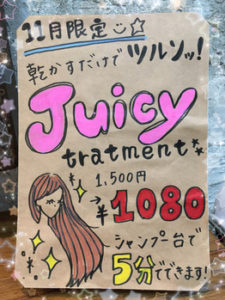 11月限定
乾かすだけで ツルンッ!
Juicy
tratment
1,500円
→ ¥1080
シャンプー台で
5分でできます!